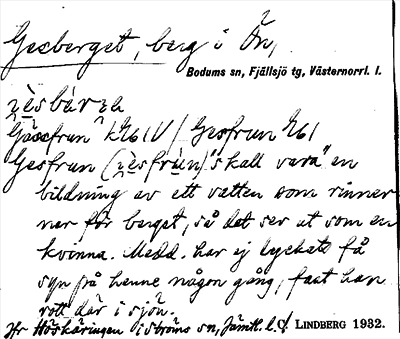 Gesberget, berg i Ön,
Bodums sn, Fjällsjö tg, Västernorrl. l.
Gesfrun skall vara en
bildning av ett vatten som rinner
ner för berget, så det ser ut som en
kvinna. Medd. har ej lyckats få
syn på henne någon gång, fast han
rott där i sjön.
Jfr Höskäringen i Ströms sn, Jämtl. l.! C. LINDBERG 1932.